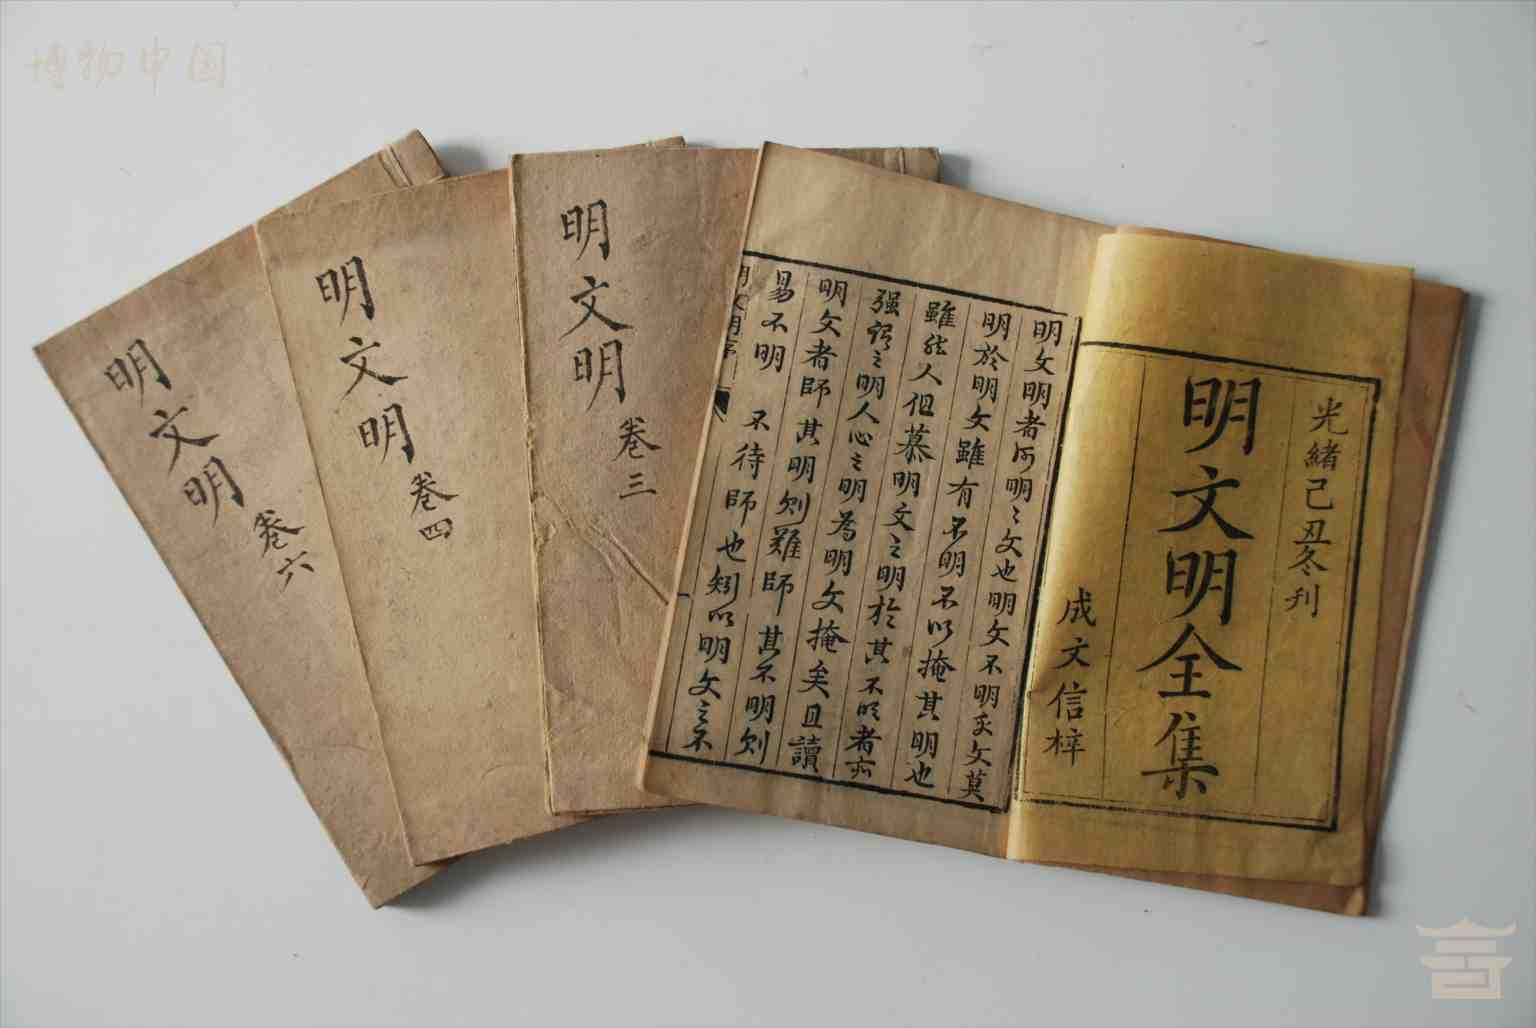 博物中国
光緒己丑冬刊
明文明全集
成文信梓
明文明者何明之文也明文不明乎文莫
明於明文雖有不明不以掩其明也
雖然人但慕明文之明於其不明者亦
强謂之明人心之明為明文掩矣且讀
明文者師其明則難師其不明則
易不明 不待師也矧以明文之不
明文明
卷三
明文明
卷四
明文明
卷六